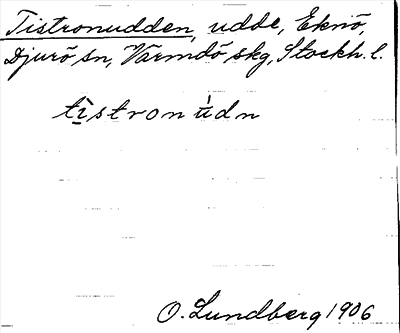 Tistronudden, udde, Eknö,
Djurö sn, Värmdö skg, Stockh. l.
tìstronu̍dn
O. Lundberg 1906